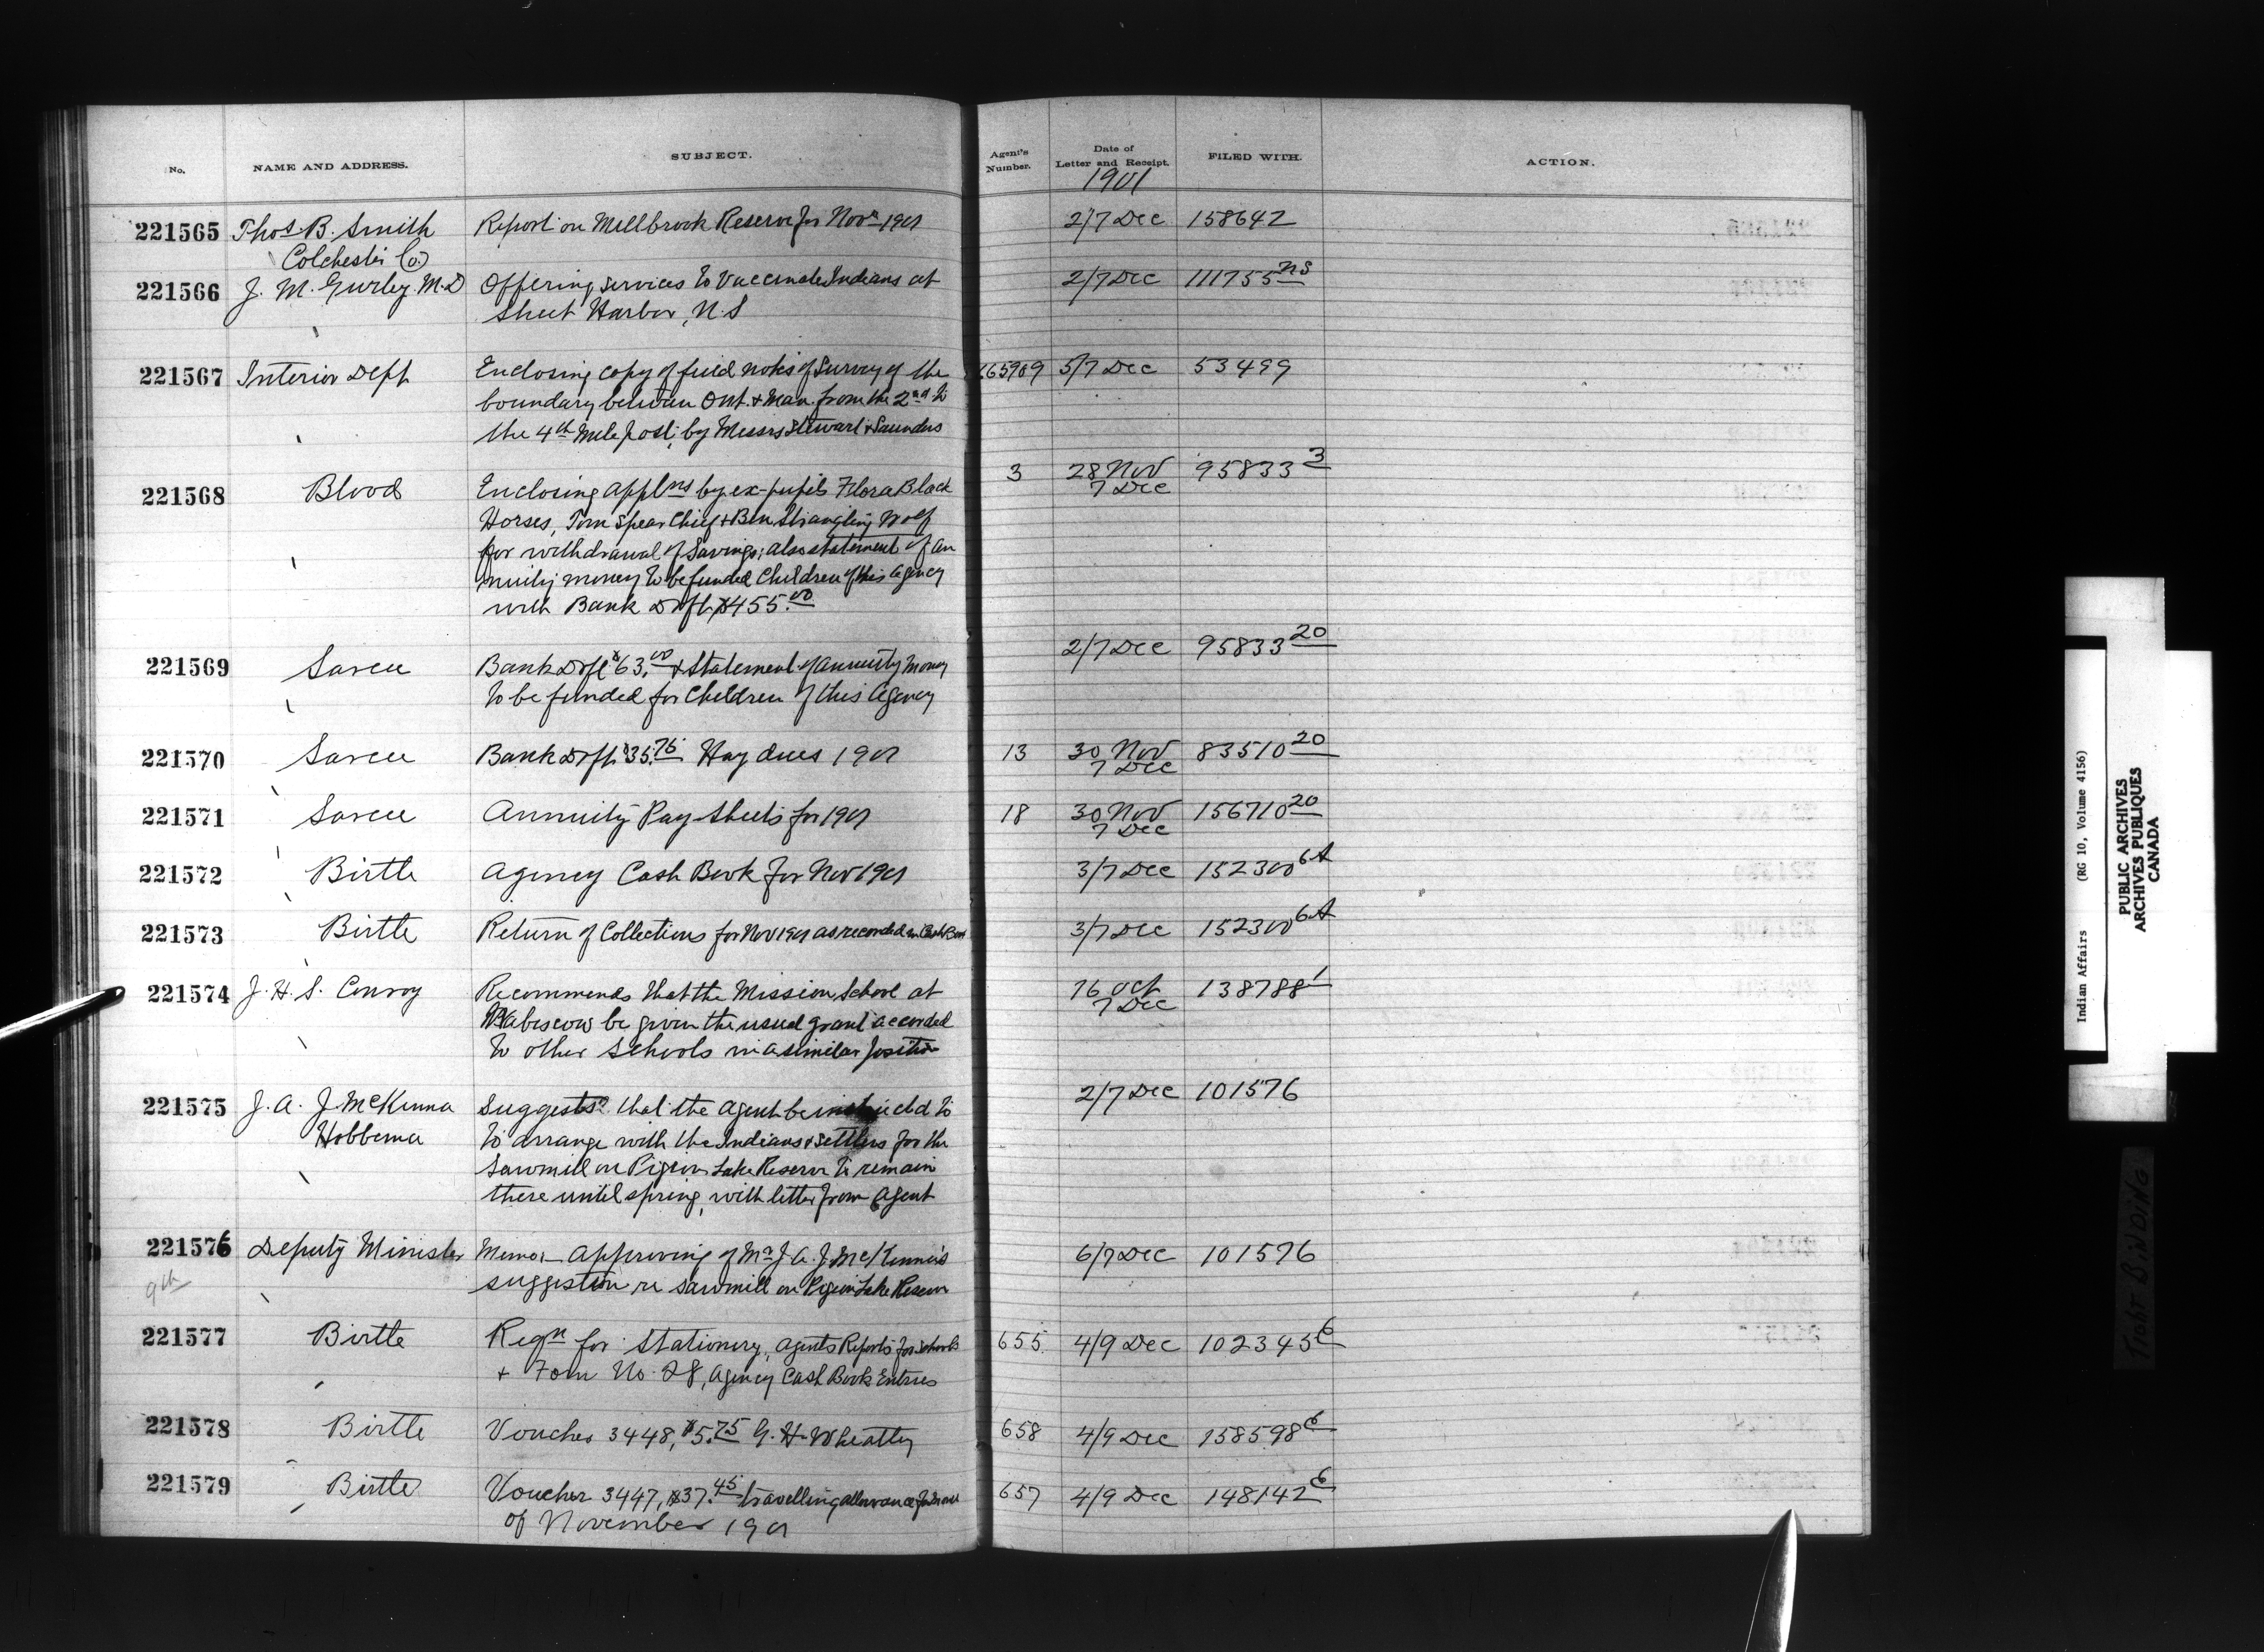 No. NAME AND ADDRESS. SUBJECT. Agent's Number. Date of Letter and Receipt. FILED WITH. ACTION.
1901
221565 Thos B. Smith Report on Millbrook Reserve for Novr 1901 2/7 Dec 158642
Colchester Co.
221566 J. M. Gurley M.D Offering services to Vaccinate Indians at 2/7 Dec 111755 NS
Sheet Harbor, N.S
221567 Interior Dept Enclosing copy of field notes of Survey of the 265989 5/7 Dec 53499
boundary between Ont. & Man. from the 2nd to
the 4th Mile post; by Messrs Stewart & Saunders
221568 Blood Enclosing applns by ex-pupils Flora Black 3 28 Nov 95833 3
7 Dec
Horses, Tom Spear Chief & Ben Strangling Wolf
for withdrawal of Savings; also statement of an
nuity money to be funded Children of this agency
with Bank Dft $455.00
221569 Sarcee Bank Dft $63.00 & Statement of annuity money 2/7 Dec 95833 20
to be funded for Children of this Agency
221570 Sarcee Bank Dft $35.75 Hay dues 1901 13 30 Nov 83510 20
7 Dec
221571 Sarcee Annuity Pay-Sheets for 1901 18 30 Nov 156710 20
7 Dec
221572 Birtle Agency Cash Book for Nov 1901 3/7 Dec 152300 6A
221573 Birtle Return of Collections for Nov 1901 as recorded in Cash Book 3/7 Dec 152300 6A
221574 J. H. S. Conroy Recommends that the Mission School at 16 Oct 138788 1
7 Dec
Wabiscow be given the usual grant accorded
to other Schools in a similar position
221575 J. A. J. McKenna Suggests that the Agent be instructed to 2/7 Dec 101576
Hobbema to arrange with the Indians & settlers for the
Sawmill on Pigeon Lake Reserve to remain
there until spring, with letter from Agent
221576 Deputy Minister Memo.- Approving of Mr J. A. J. McKenna's 6/7 Dec 101576
9th suggestion re sawmill on Pigeon Lake Reserve
221577 Birtle Reqn for Stationery, Agents Reports for Schools 655 4/9 Dec 102345 6
& Form No. 28, Agency Cash Book Entries
221578 Birtle Voucher 3448, $5.75 G. H. Wheatley 658 4/9 Dec 158598 6
221579 Birtle Voucher 3447, $37.45 travelling allowance for
of November 1901 657 4/9 Dec 148142 6
Indian Affairs (RG 10, Volume 4156)
PUBLIC ARCHIVES
ARCHIVES PUBLIQUES
CANADA
TIGHT BINDING